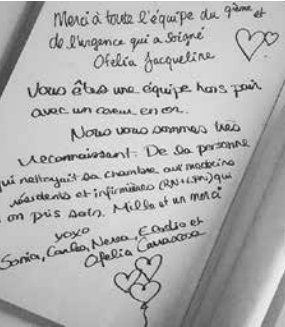 Merci à toute l'équipe du 9ième et
de l'urgence qui a soigné
Ofelia Jacqueline
Vous êtes une équipe hors pair
avec un coeur en or.
Nous vous sommes très
reconnaissant. De la personne
qui nettoyait sa chambre aux médecins
résidents et infirmières (RN+LPN) qui
on pris soin. Mille et un merci
xoxo
Sonia, Carlos, Nessa, et
Ofelia Carrascosa